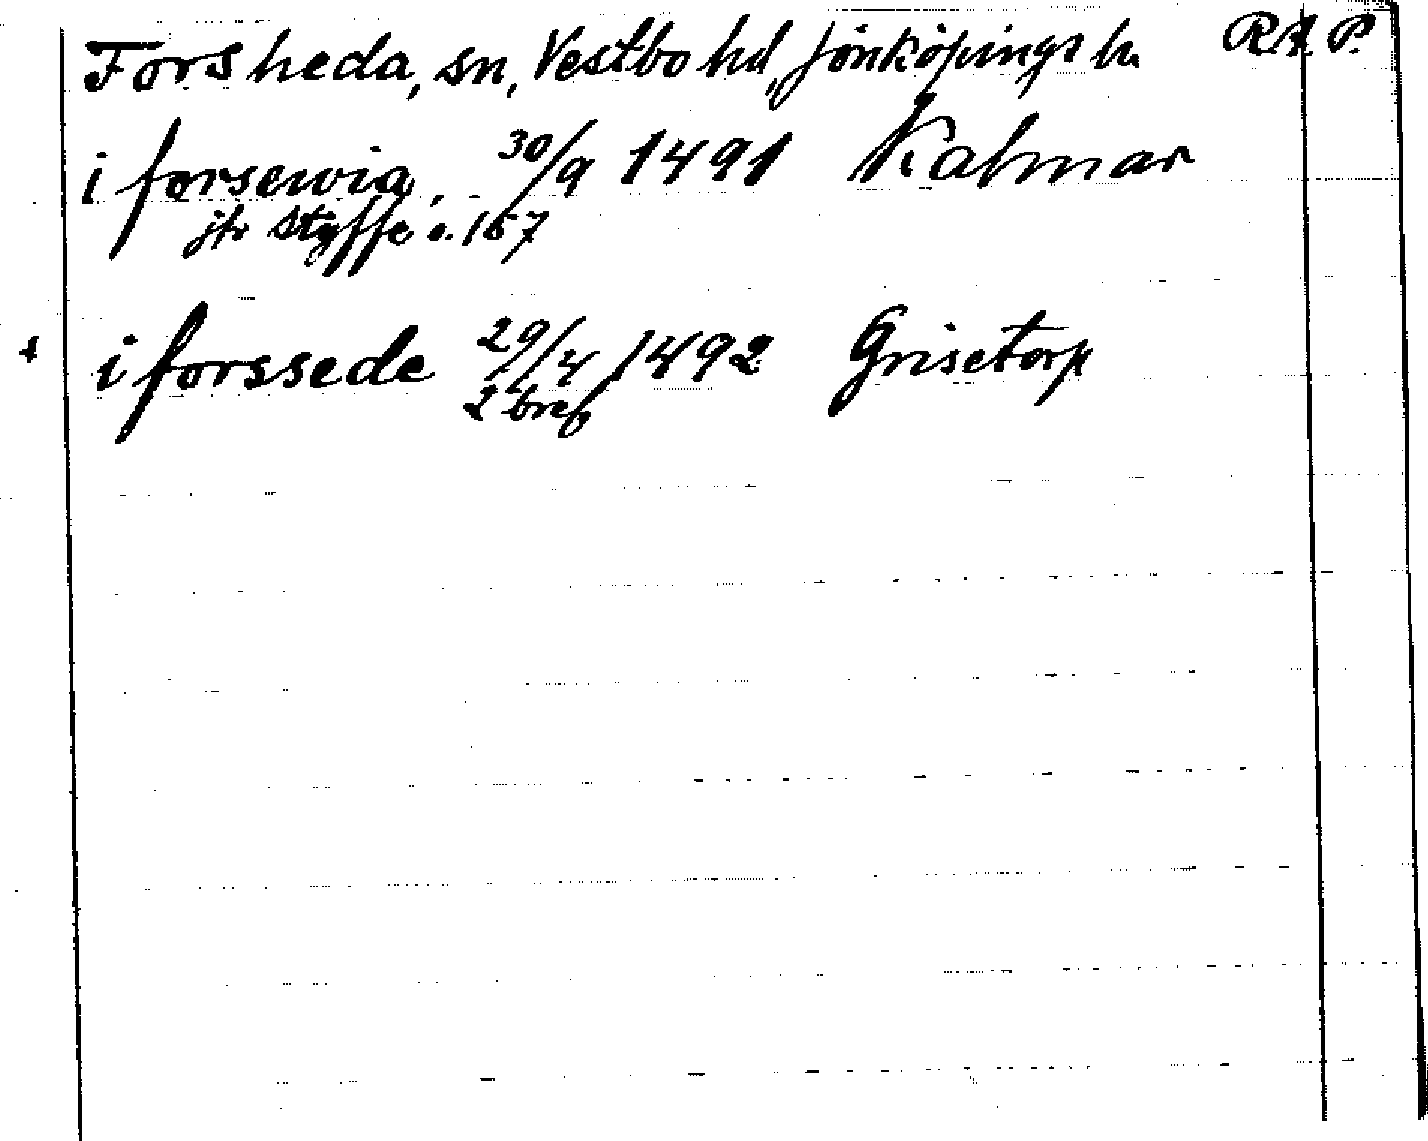 Forsheda, sn, Vestbo hd, Jönköpings ln RAP.
i forsewia, 30/9 1491 Kalmar
jfr Styffe s. 157
+ i forssede 29/4 1492 Grisetorp
2 bref